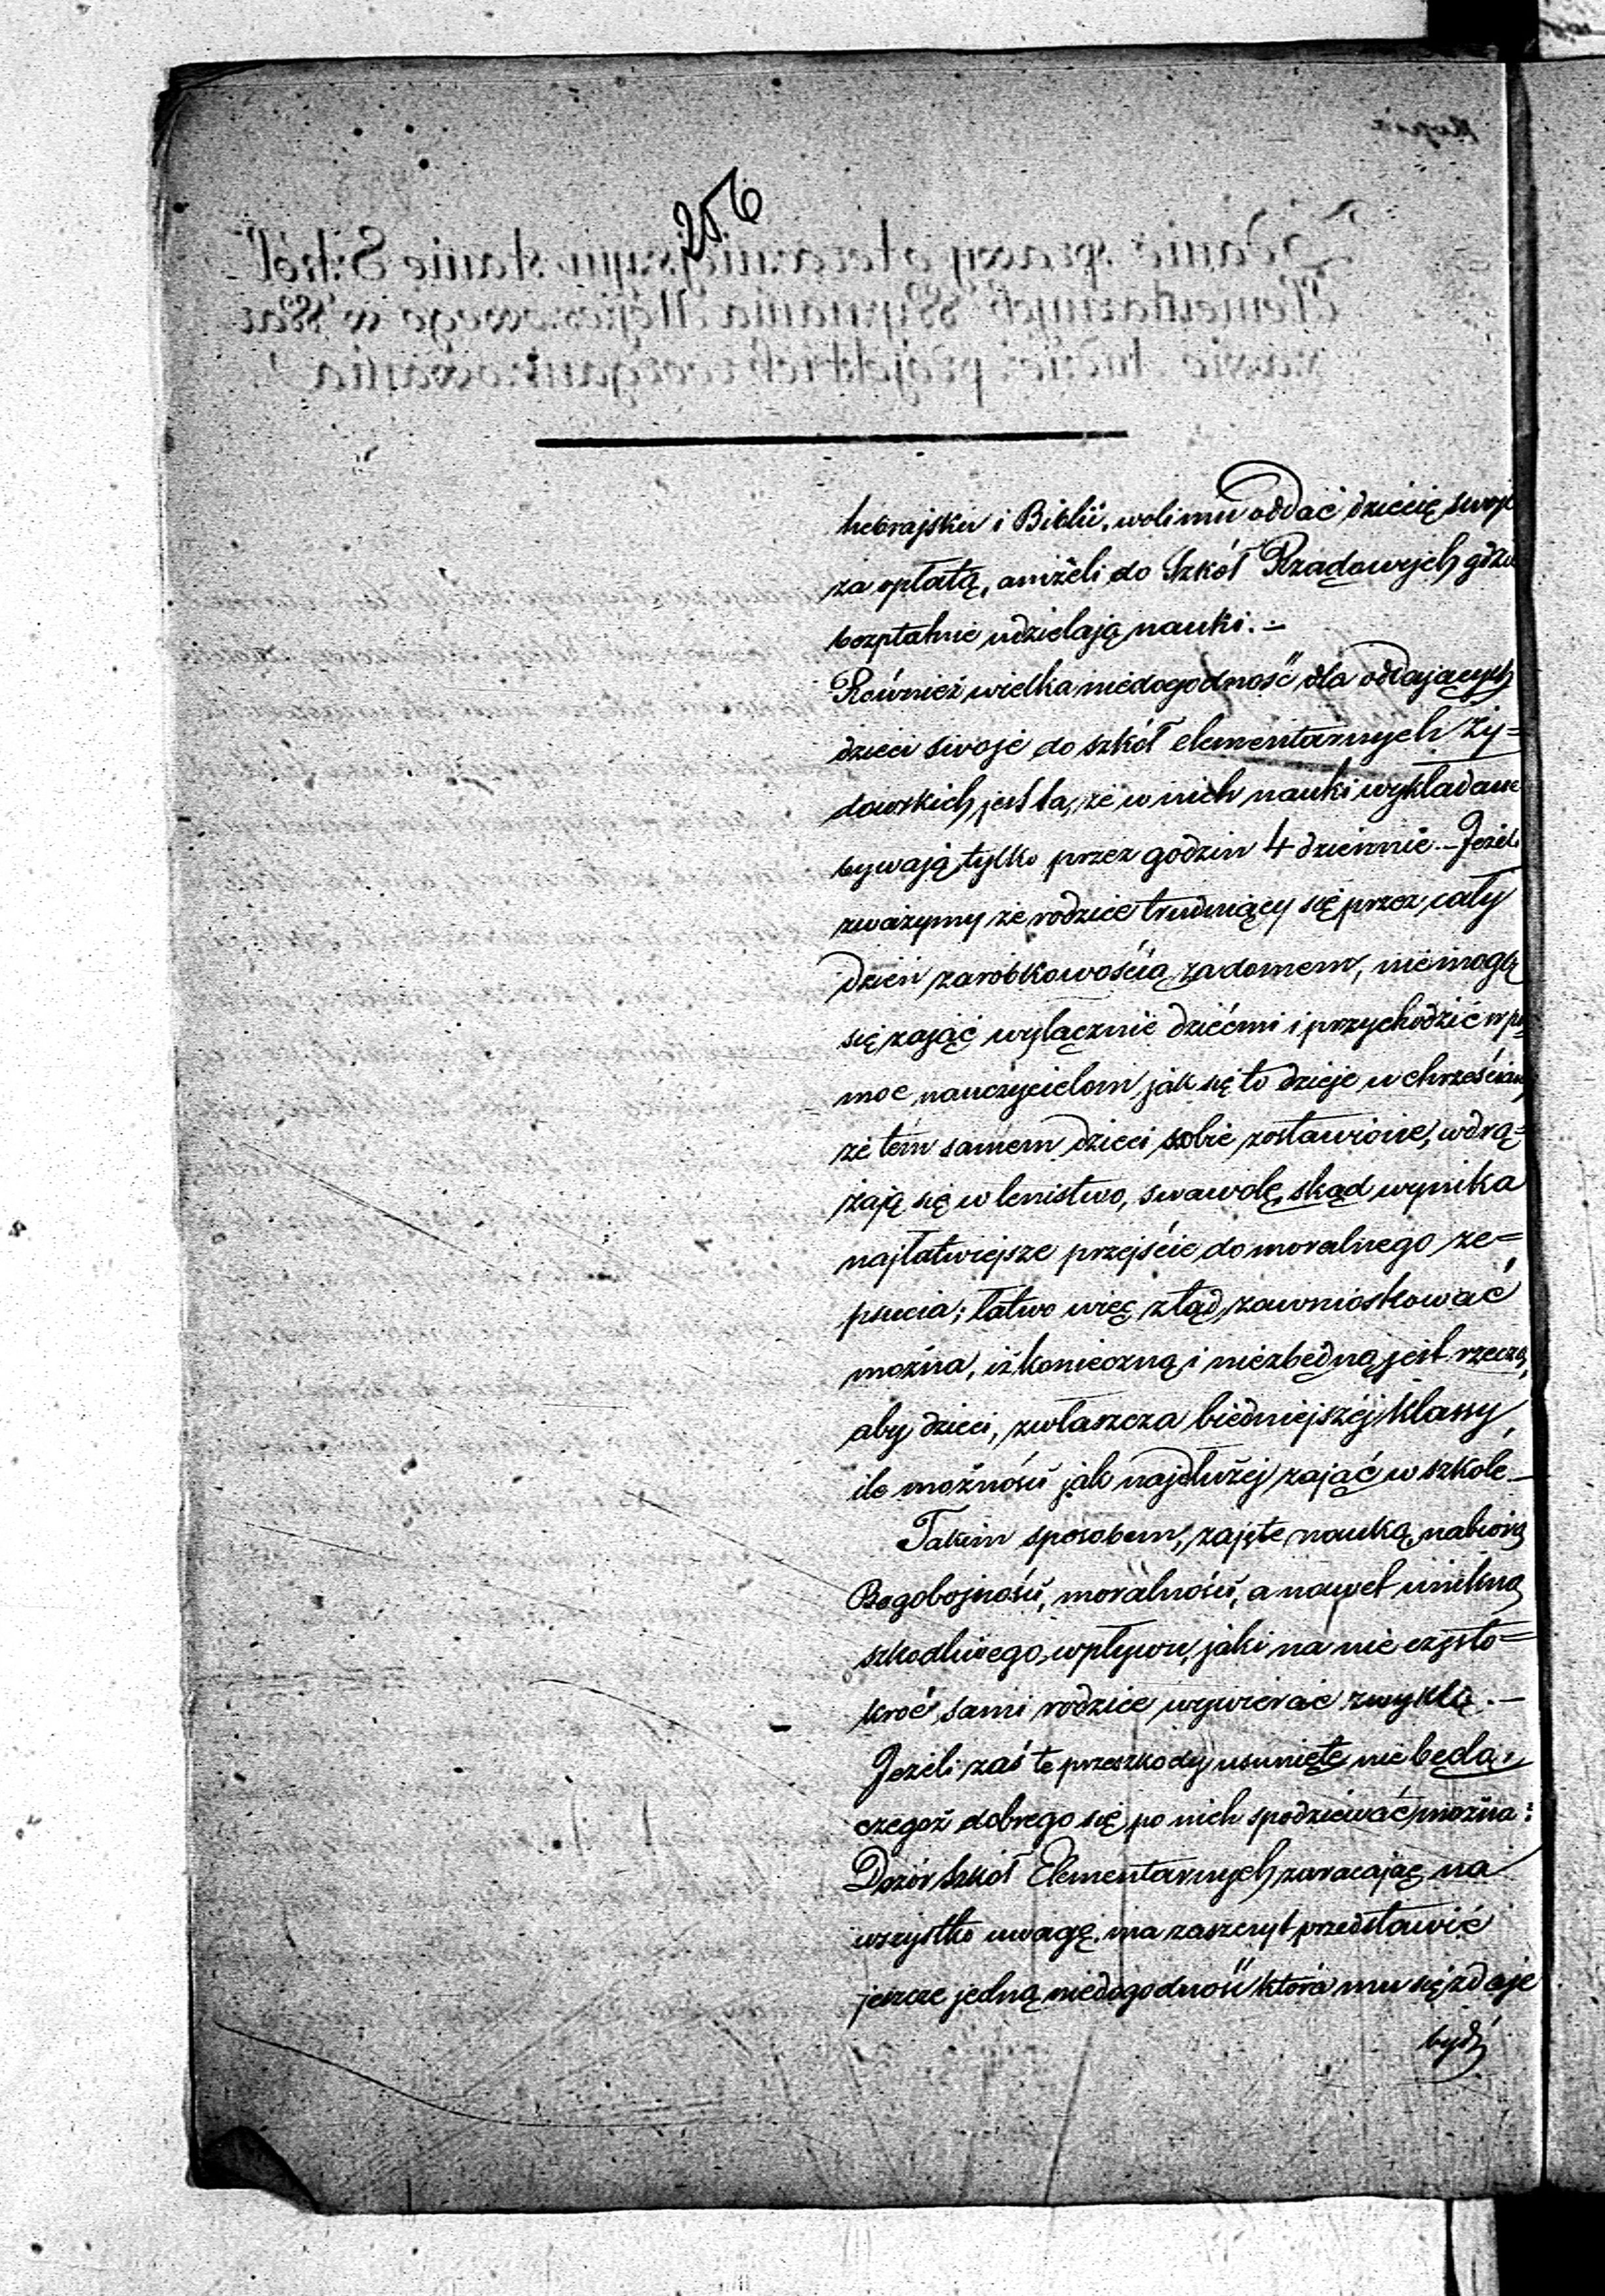 256
hebrajsku i Biblii, woli mu oddać dziecię swoje
za opłatą, aniżeli do Szkół Rządowych gdzie
bezpłatnie udzielają nauki. –
Również wielka niedogodność dla oddających
dzieci swoje do szkół elementarnych Ży=
dowskich jest ta, że w nich nauki wykładane
bywają tylko przez godzin 4 dziennie. – Jeżeli
zważymy że rodzice trudniący się przez cały
dzień zarobkowością za domem, nie mogą
się zająć wyłącznie dziećmi i przychodzić w po
moc nauczycielom jak się to dzieje u chrześcian,
że tem samem dzieci sobie zostawione, wdrą=
żają się w lenistwo, swawolę, skąd wynika
najłatwiejsze przejście do moralnego ze=
psucia; łatwo więc ztąd zawnioskować
można, iż konieczną i niezbędną jest rzeczą,
aby dzieci, zwłaszcza biedniejszéj klassy,
ile możności jak najdłużej zająć w szkole. –
Takim sposobem, zajęte nauką, nabiorą
Bogobojności, moralności, a nawet unikną
szkodliwego wpływu, jaki na nie często=
kroć sami rodzice wywierać zwykli. –
Jeżeli zaś te przeszkody usunięte nie będą,
czegoż dobrego się po nich spodziewać można:
Dozór Szkół Elementarnych zwracając na
wszystko uwagę, ma zaszczyt przedstawić
jeszcze jedną niedogodność która mu się zdaje
bydź